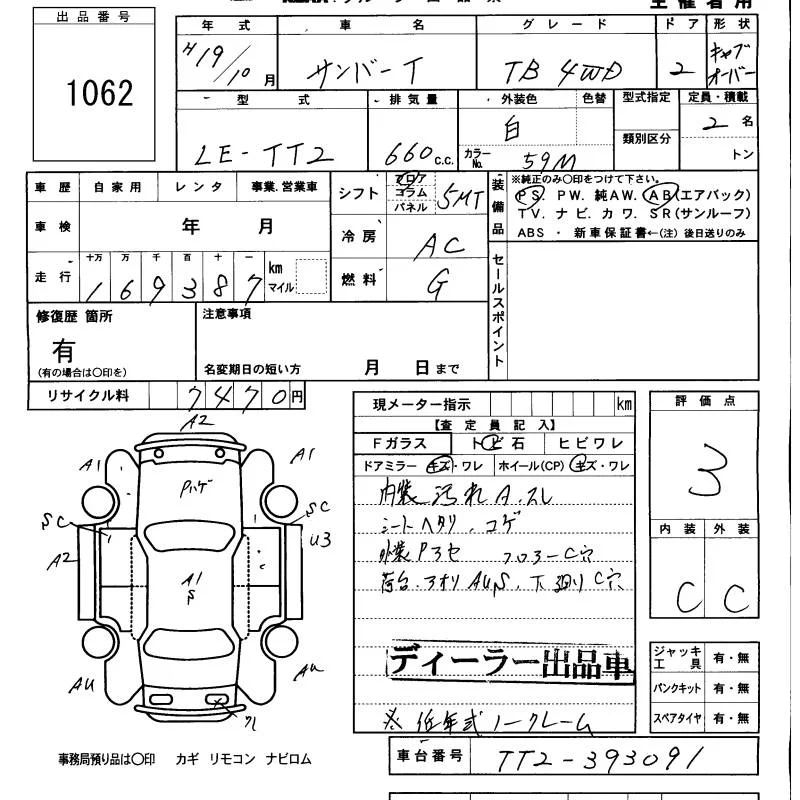 出品番号
1062
主催者用
年式 車名 グレード ドア 形状
H19/10月 サンバーT TB 4WD 2 キャブオーバー
型式 排気量 外装色 色替 型式指定 定員・積載
LE-TT2 660c.c. 白 カラーNo. 59M 類別区分 2名 トン
車歴 自家用 レンタ 事業.営業車
車検 年 月
走行 十万 万 千 百 十 一
169387 km マイル
シフト フロア コラム パネル 5MT
冷房 AC
燃料 G
装備品
※純正のみ〇印をつけて下さい。
PS. PW. 純AW. AB(エアバック)
TV. ナビ. カワ. SR(サンルーフ)
ABS ・ 新車保証書←(注) 後日送りのみ
セールスポイント
修復歴 箇所
有
(有の場合は〇印を)
注意事項
名変期日の短い方 月 日まで
リサイクル料 7470円
現メーター指示 km
【査定員記入】
Fガラス トビ石 ヒビワレ
ドアミラー キズ・ワレ ホイール(CP) キズ・ワレ
内装 汚れ A.スレ
シートヘタリ、コゲ
外装 Pヨセ フロアーC穴
荷台.アオリ AUS、下廻りC穴
ディーラー出品車
※低年式ノークレーム
評価点
3
内装 外装
C C
ジャッキ工具 有・無
パンクキット 有・無
スペアタイヤ 有・無
A2
A1 A1
Pハゲ
SC SC
A2 U3
A1
S
AU AU
ワレ
事務局預り品は〇印 カギ リモコン ナビロム
車台番号 TT2-393091